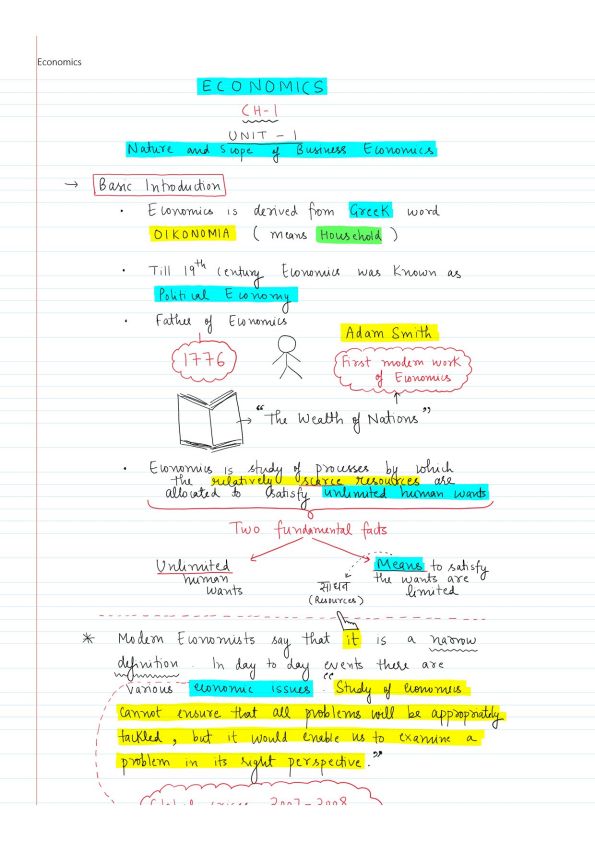 Economics
ECONOMICS
CH-1
UNIT - 1
Nature and Scope of Business Economics
→ Basic Introduction
• Economics is derived from Greek word
OIKONOMIA ( means Household )
• Till 19th century Economics was known as
Political Economy
• Father of Economics
Adam Smith
1776
First modern work
of Economics
"The Wealth of Nations"
• Economics is study of processes by which
the relatively scarce resources are
allocated to satisfy unlimited human wants
Two fundamental facts
Unlimited
human
wants
Means to satisfy
the wants are
limited
साधन
(Resources)
* Modern Economists say that it is a narrow
definition. In day to day events there are
various economic issues. "Study of economics
cannot ensure that all problems will be appropriately
tackled, but it would enable us to examine a
problem in its right perspective."
2007-2008